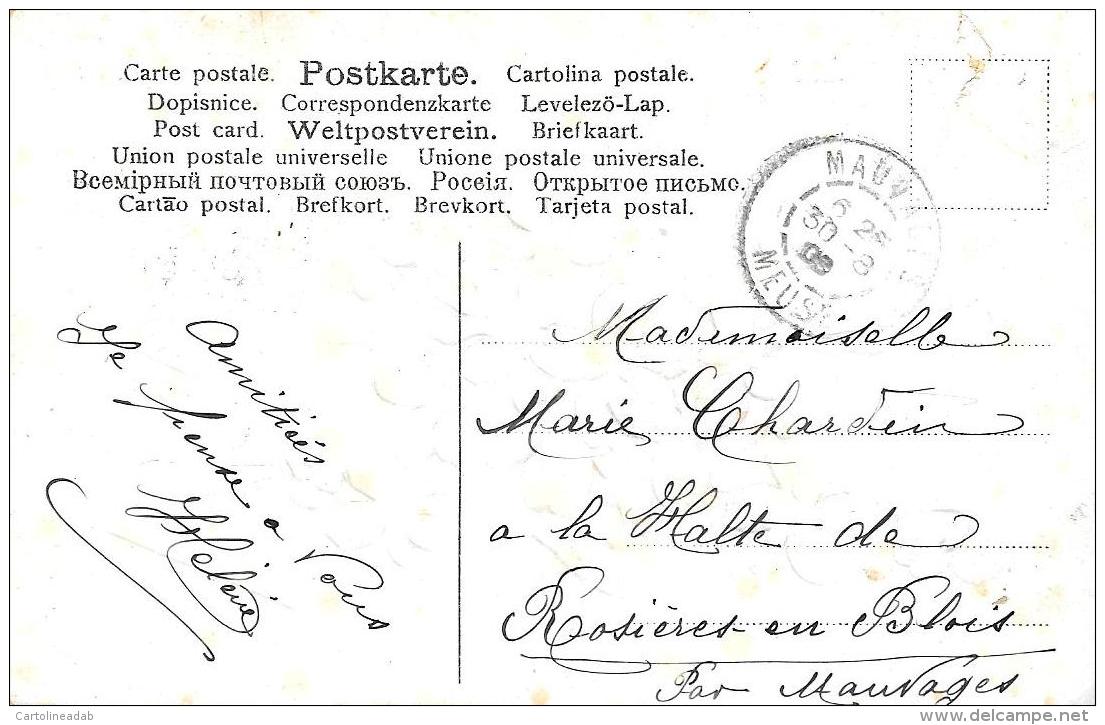 Carte postale. Postkarte. Cartolina postale.
Dopisnice. Correspondenzkarte Levelező-Lap.
Post card. Weltpostverein. Briefkaart.
Union postale universelle Unione postale universale.
Всемірный почтовый союзъ. Россія. Открытое письмо.
Cartão postal. Brefkort. Brevkort. Tarjeta postal.
6 25
30 - 8
09
MEUSE
Amitiés
Je pense a Vous
Hélène
Mademoiselle
Marie Chardin
a la Halte de
Rosières en Blois
Par Mauvages
Cartolineadab
delcampe.net